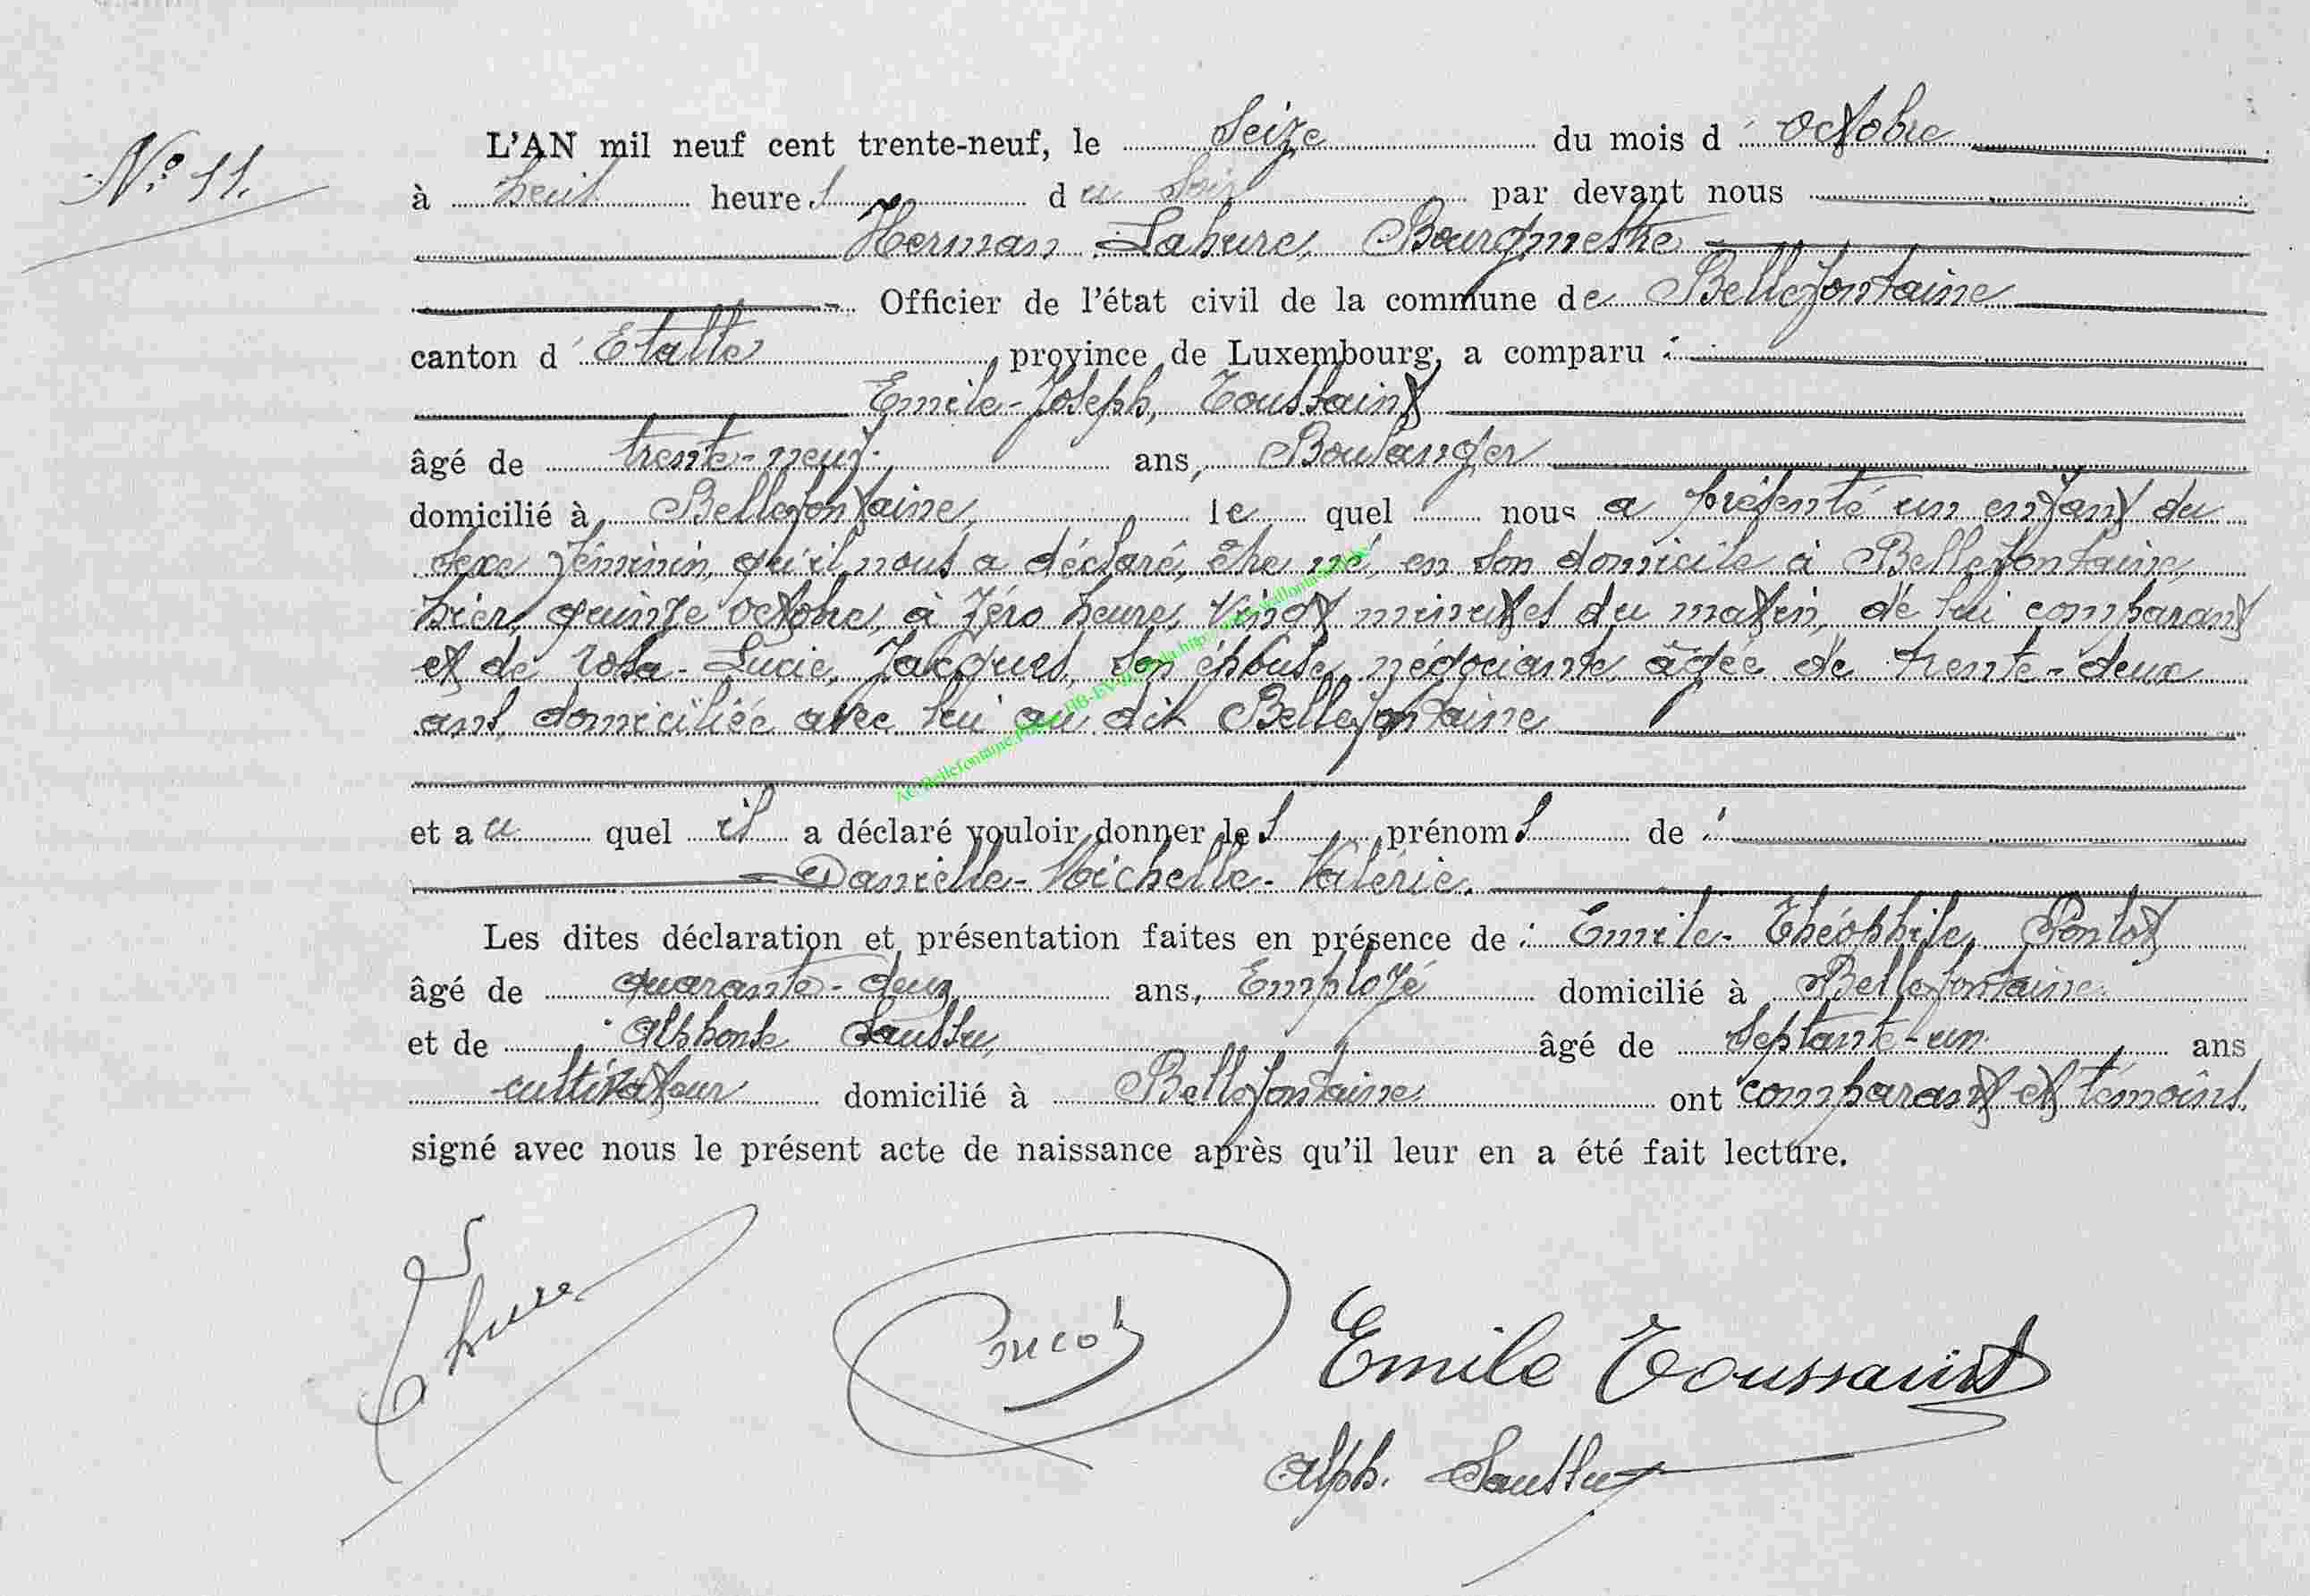 N° 11.
L'AN mil neuf cent trente-neuf, le Seize du mois d' octobre
à huit heures du Soir par devant nous
Herman Lahure, Bourgmestre
Officier de l'état civil de la commune de Bellefontaine
canton d' Etalle province de Luxembourg, a comparu :
Emile-Joseph, Toussaint
âgé de trente-neuf ans, Boulanger
domicilié à Bellefontaine, lequel nous a présenté un enfant du
sexe féminin, qu'il nous a déclaré, être né, en son domicile à Bellefontaine,
hier, quinze octobre, à zéro heure, vingt minutes du matin, de lui comparant
et de Rosa-Lucie, Jacques, son épouse, négociante, âgée de trente-deux
ans, domiciliée avec lui au dit Bellefontaine
et au quel il a déclaré vouloir donner les prénoms de :
Danielle-Michelle-Valérie.
Les dites déclaration et présentation faites en présence de : Emile-Théophile, Poncelot
âgé de quarante-deux ans, Employé domicilié à Bellefontaine
et de Alphonse Saussu, âgé de septante-un ans
cultivateur domicilié à Bellefontaine ont comparant et témoins,
signé avec nous le présent acte de naissance après qu'il leur en a été fait lecture.
Emile Toussaint
Alph. Saussu